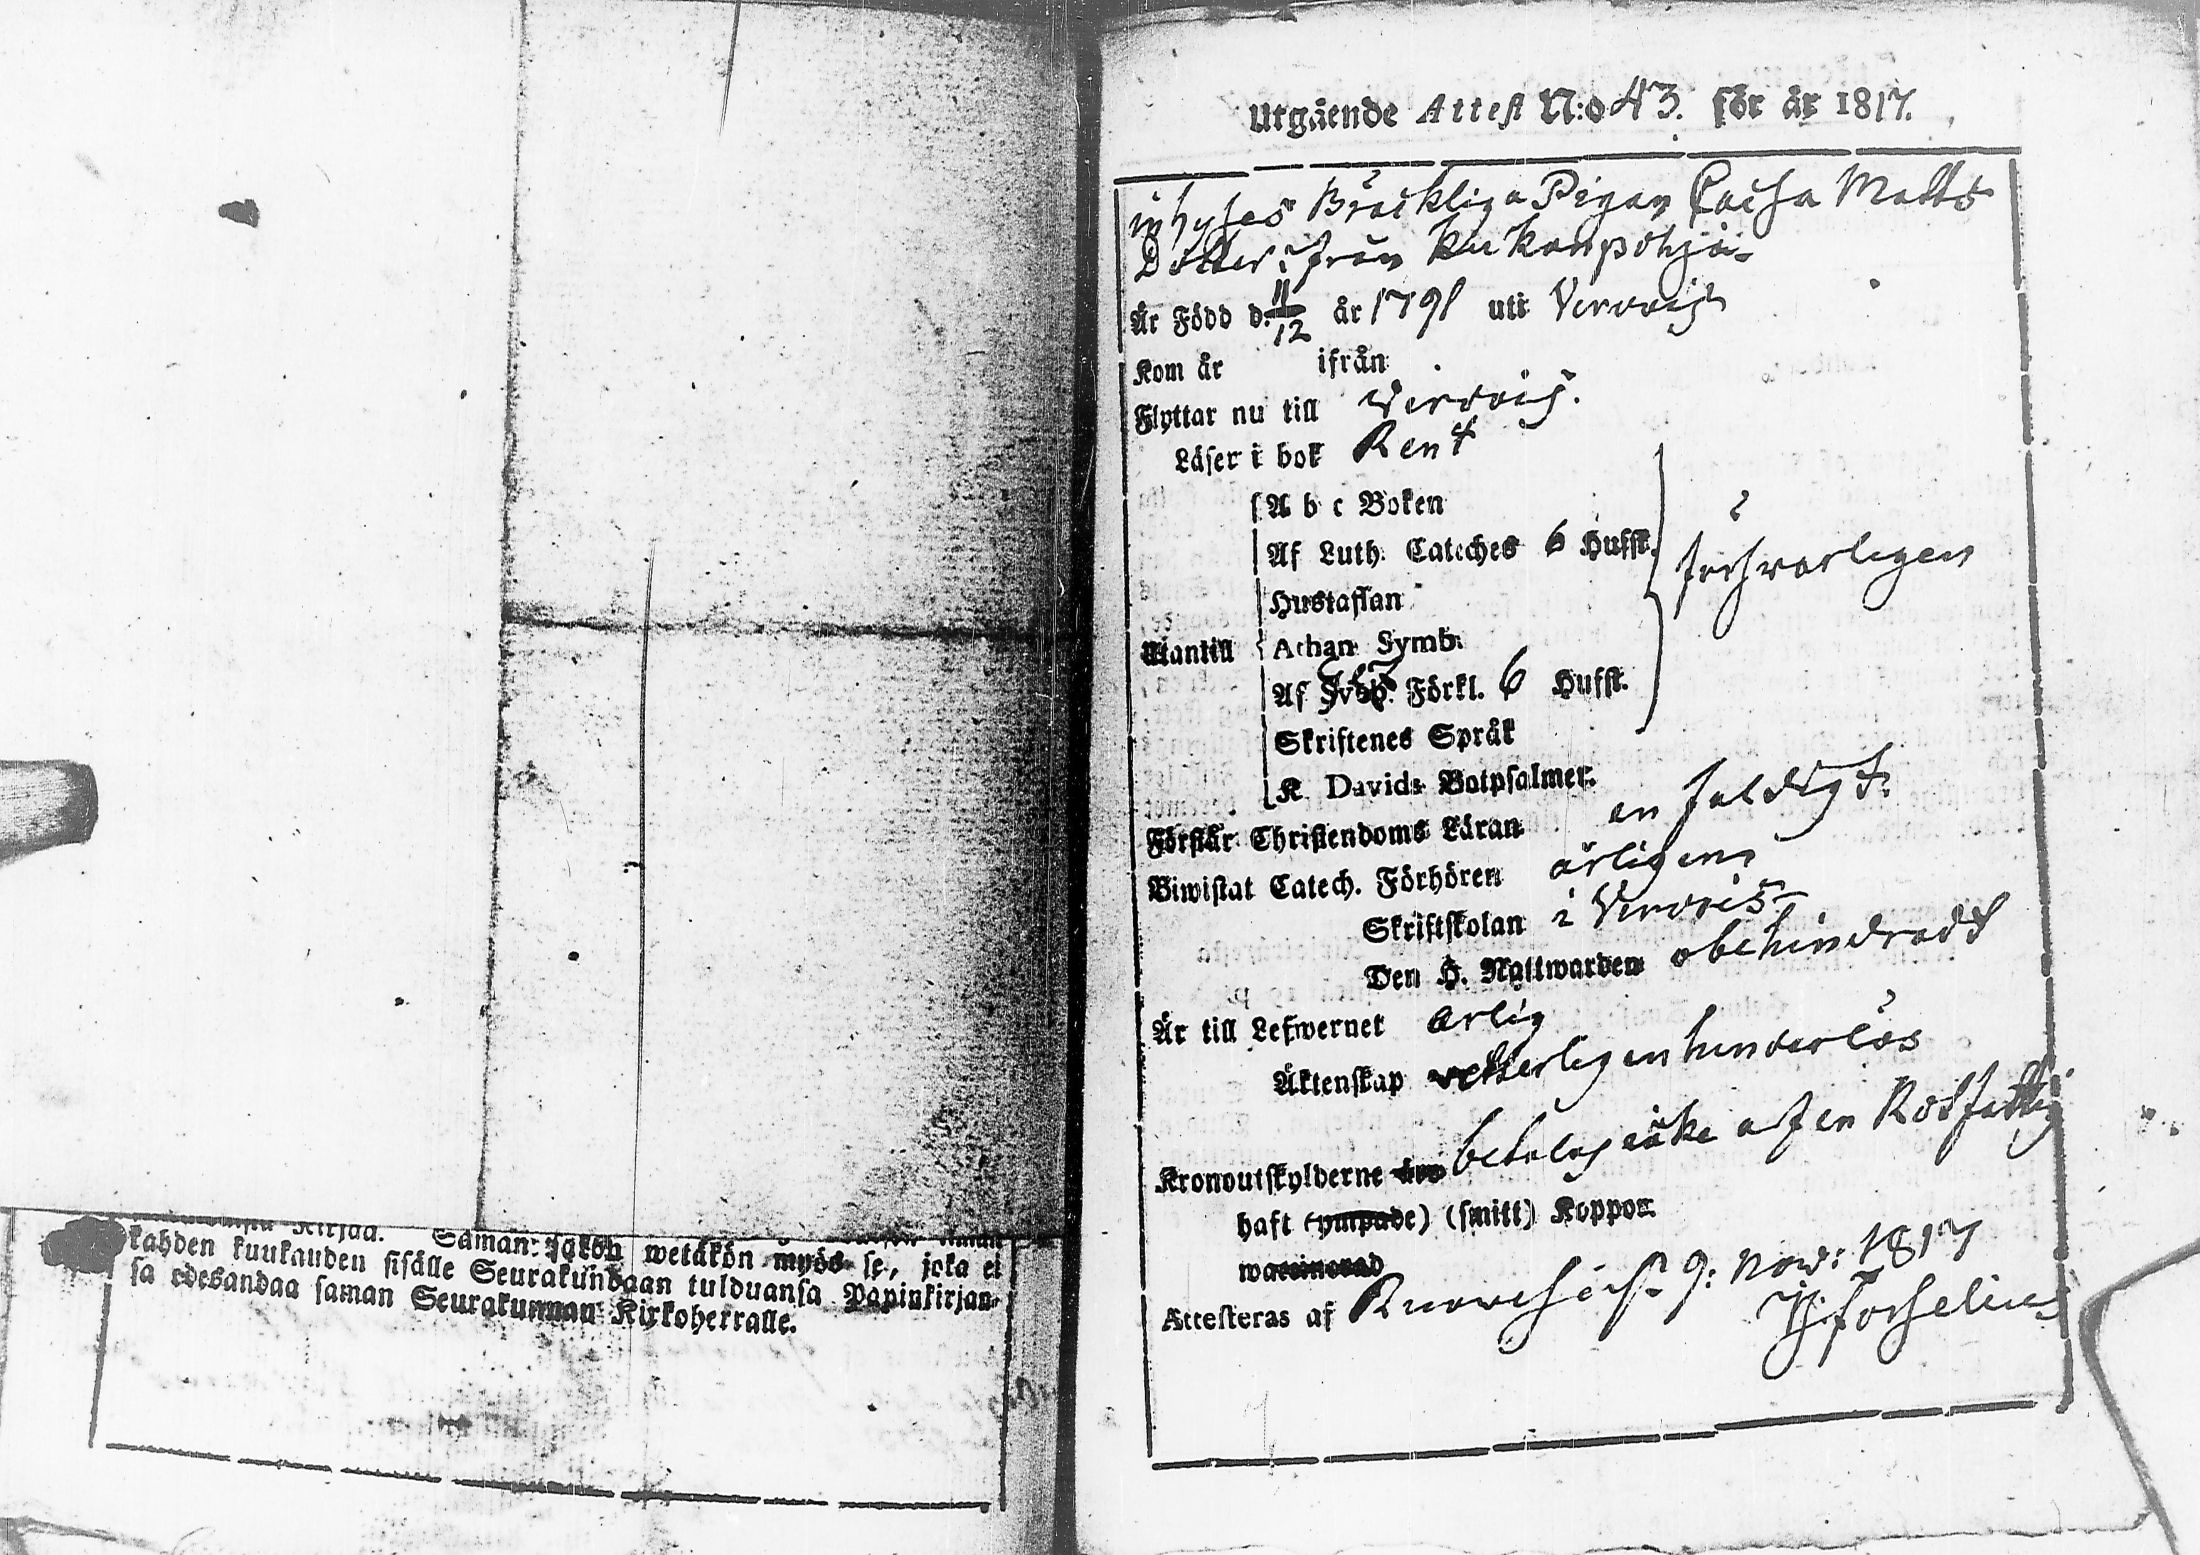 kahden kuukauden sisälle Seurakundaan tulduansa Papinkirjan-
sa edesandaa saman Seurakunnan Kirkoherralle.
Kirjaa. Saman wetäkön myös se, joka ei
Utgående Attest N:o 43. för år 1817.
inhyses Bräckliga Pigan Caisa Matts
Dotter ifrån Kukonpohja
Är Född d. 11/12 år 1791 uti Wirrois
Kom år ifrån
Flyttar nu till Wirrois.
Läser i bok Rent
A b c Boken
Af Luth. Cateches 6 Hufst.
försvarligen
Hustaflan
Utantill Athan. Symb.
Af Förkl. 6 Hufst.
Skriftenes Språk
K. Davids Botpsalmer.
Förstår Christendoms Läran enfaldigt.
Biwistat Catech. Förhören årligen
Skriftskolan i Wirrois
Den H. Nattwarden obehindradt
Är till Lefwernet ärlig
Äktenskap vetterligen hinderlös
Kronoutskylderne betalas icke af en Rotfattig
haft (ympade) (smitt) Koppor.
waccinerad
Attesteras af Ruowesi d. 9: Nov: 1817
Forselius